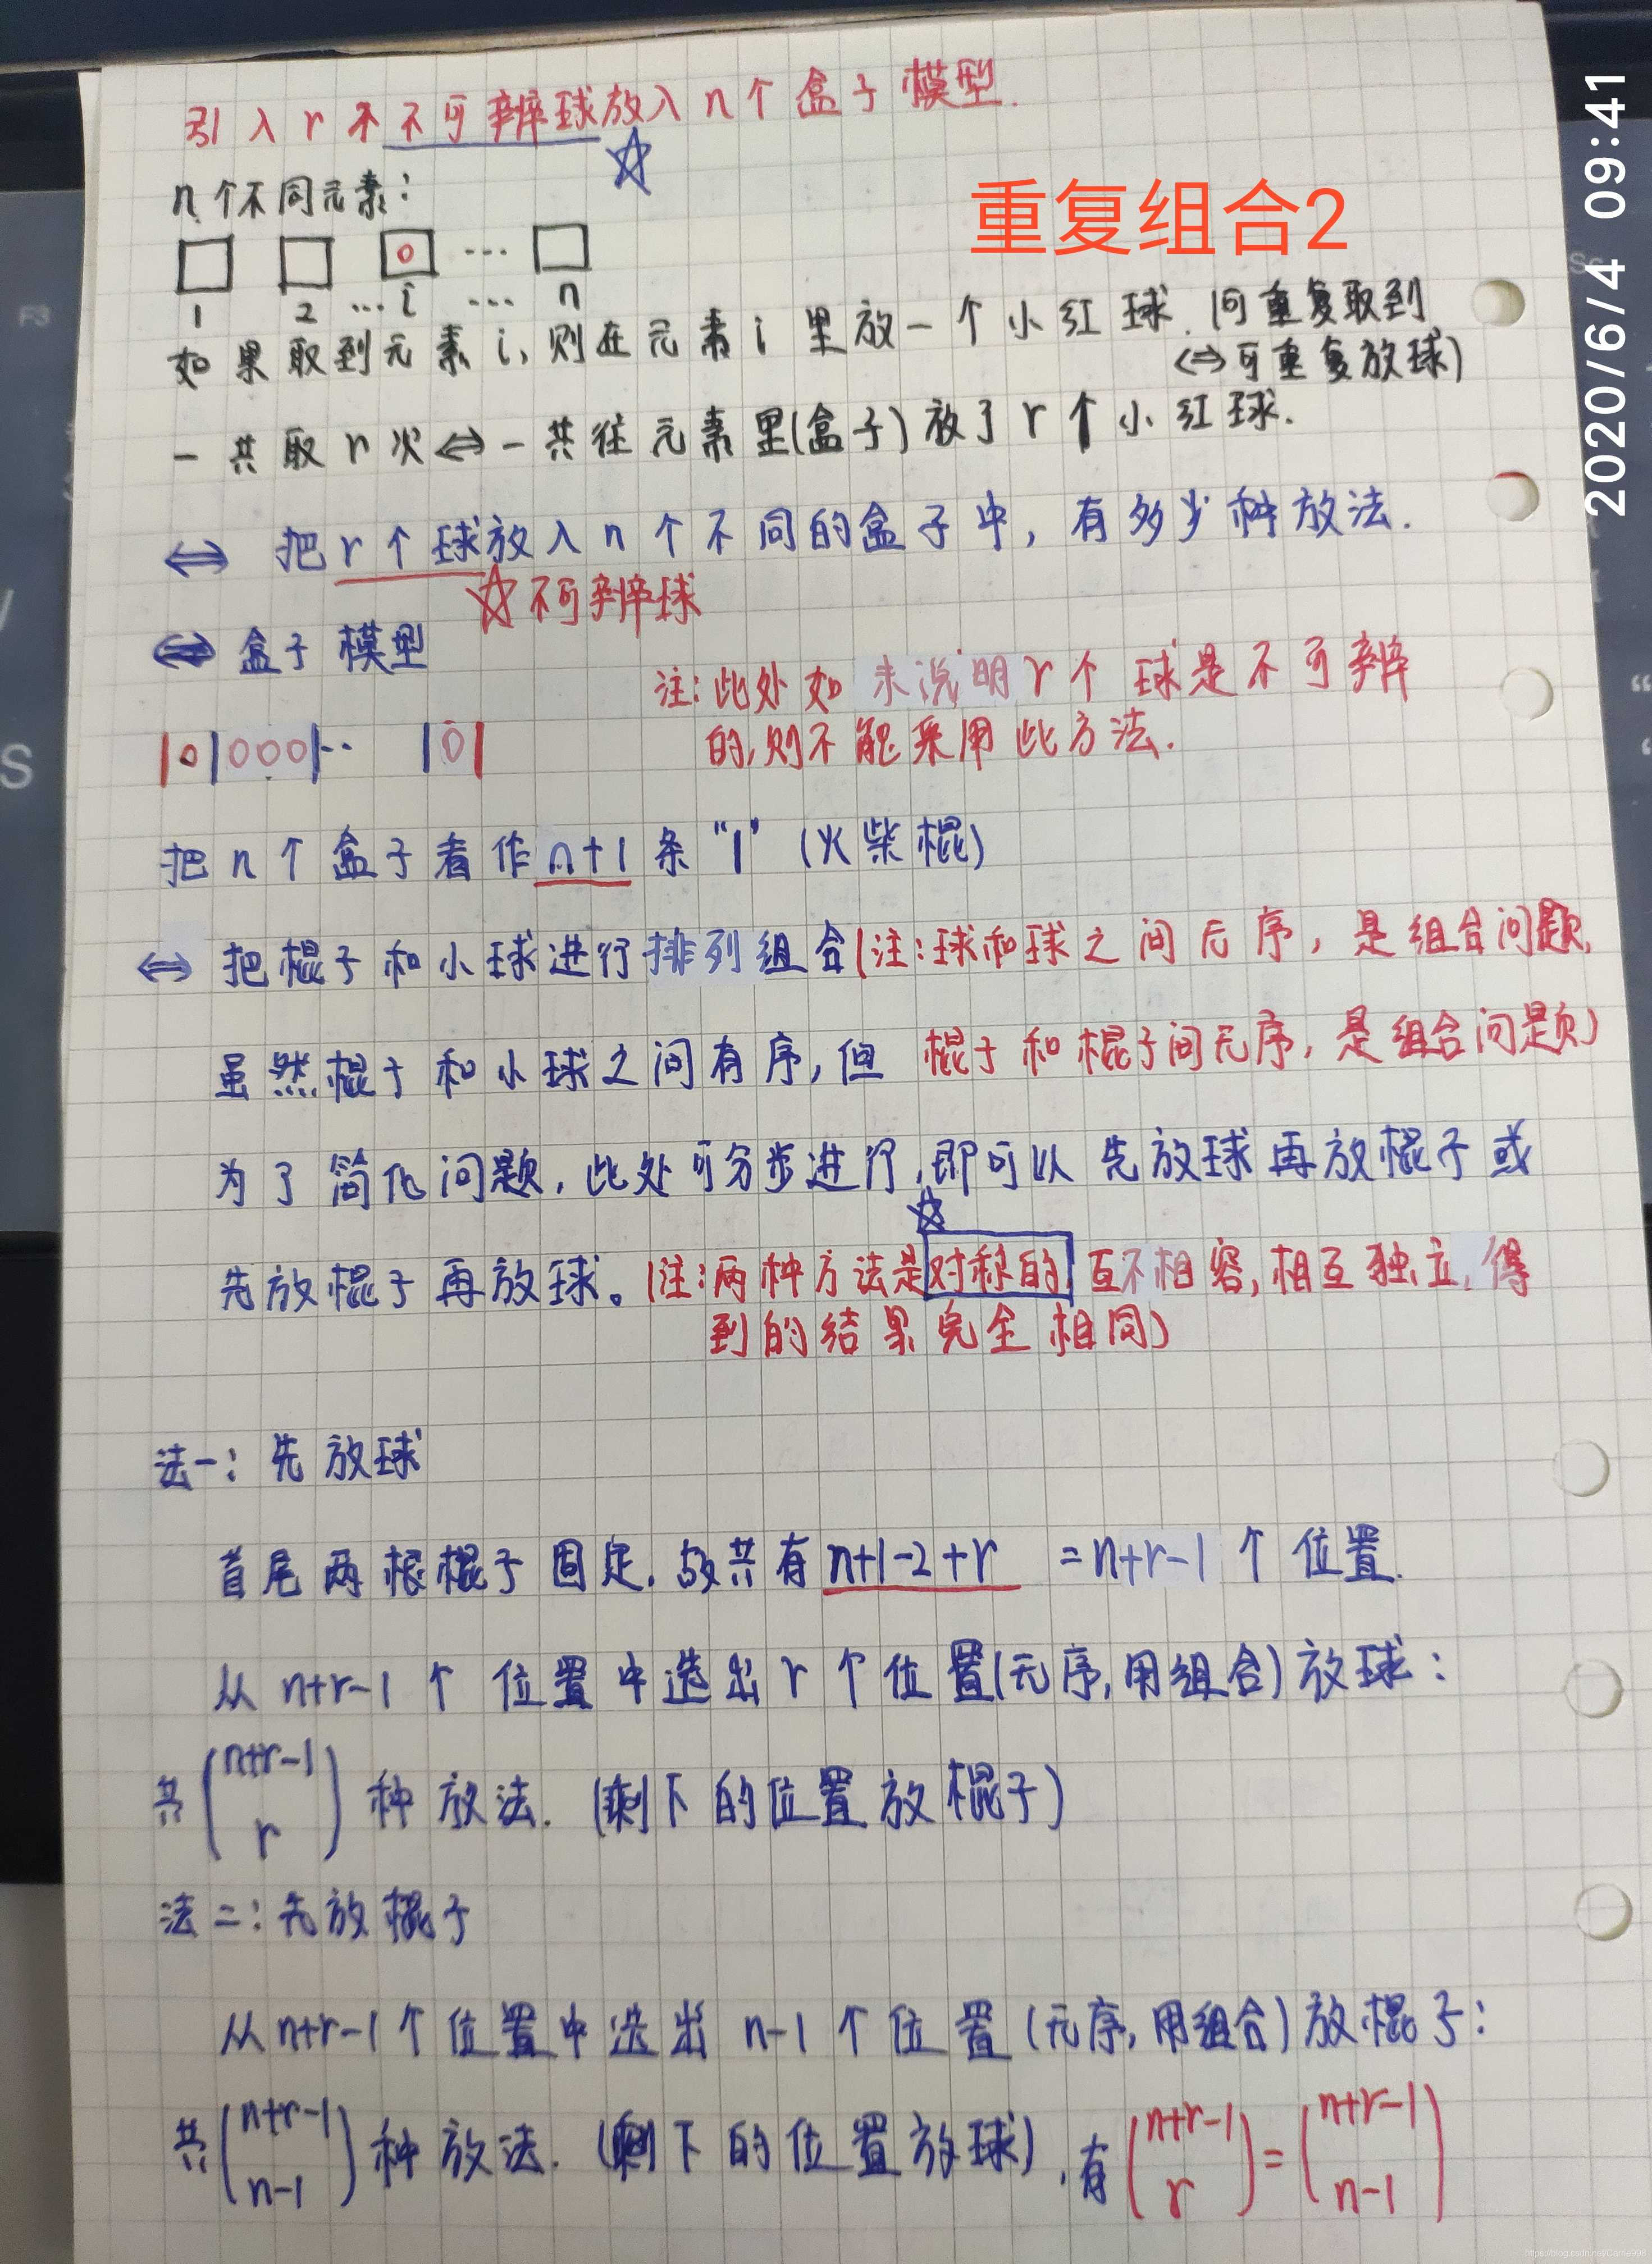 引入r个不可辨球放入n个盒子模型.
n个不同元素:
重复组合2
2020/6/4 09:41
0 ...
1 2 ... i ... n
如果取到元素i,则在元素i里放一个小红球.(可重复取到
⇔可重复放球)
一共取r次⇔一共往元素里(盒子)放了r个小红球.
⇔ 把r个球放入n个不同的盒子中,有多少种放法.
不可辨球
⇔ 盒子模型
注:此处如未说明r个球是不可辨
的,则不能采用此方法.
|0|000|.. |0|
把n个盒子看作n+1条"|"(火柴棍)
⇔ 把棍子和小球进行排列组合(注:球和球之间无序,是组合问题,
虽然棍子和小球之间有序,但 棍子和棍子间无序,是组合问题)
为了简化问题,此处可分步进行,即可以先放球再放棍子或
先放棍子再放球。(注:两种方法是对称的,互不相容,相互独立,得
到的结果完全相同)
法一:先放球
首尾两根棍子固定.故共有n+1-2+r =n+r-1个位置.
从n+r-1个位置中选出r个位置(无序,用组合)放球:
共(n+r-1
r)种放法.(剩下的位置放棍子)
法二:先放棍子
从n+r-1个位置中选出n-1个位置(无序,用组合)放棍子:
共(n+r-1
n-1)种放法.(剩下的位置放球),有(n+r-1
r)=(n+r-1
n-1)